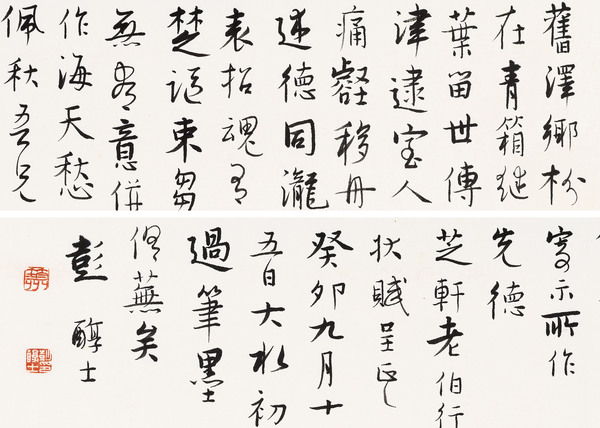 舊澤鄉枌
在青箱継
葉留世傳
津逮室人
痛壑移舟
述德同瀧
表招魂有
楚謳束芻
無意併
作海天愁
佩秋吾兄
寫示所作
先德
芝軒老伯行
狀賦呈正
癸卯九月十
五日大水初
過筆墨
俱蕪矣
彭醇士